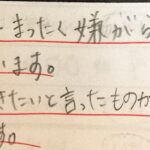 まったく嫌がら
います。
きたいと言ったものか
す。